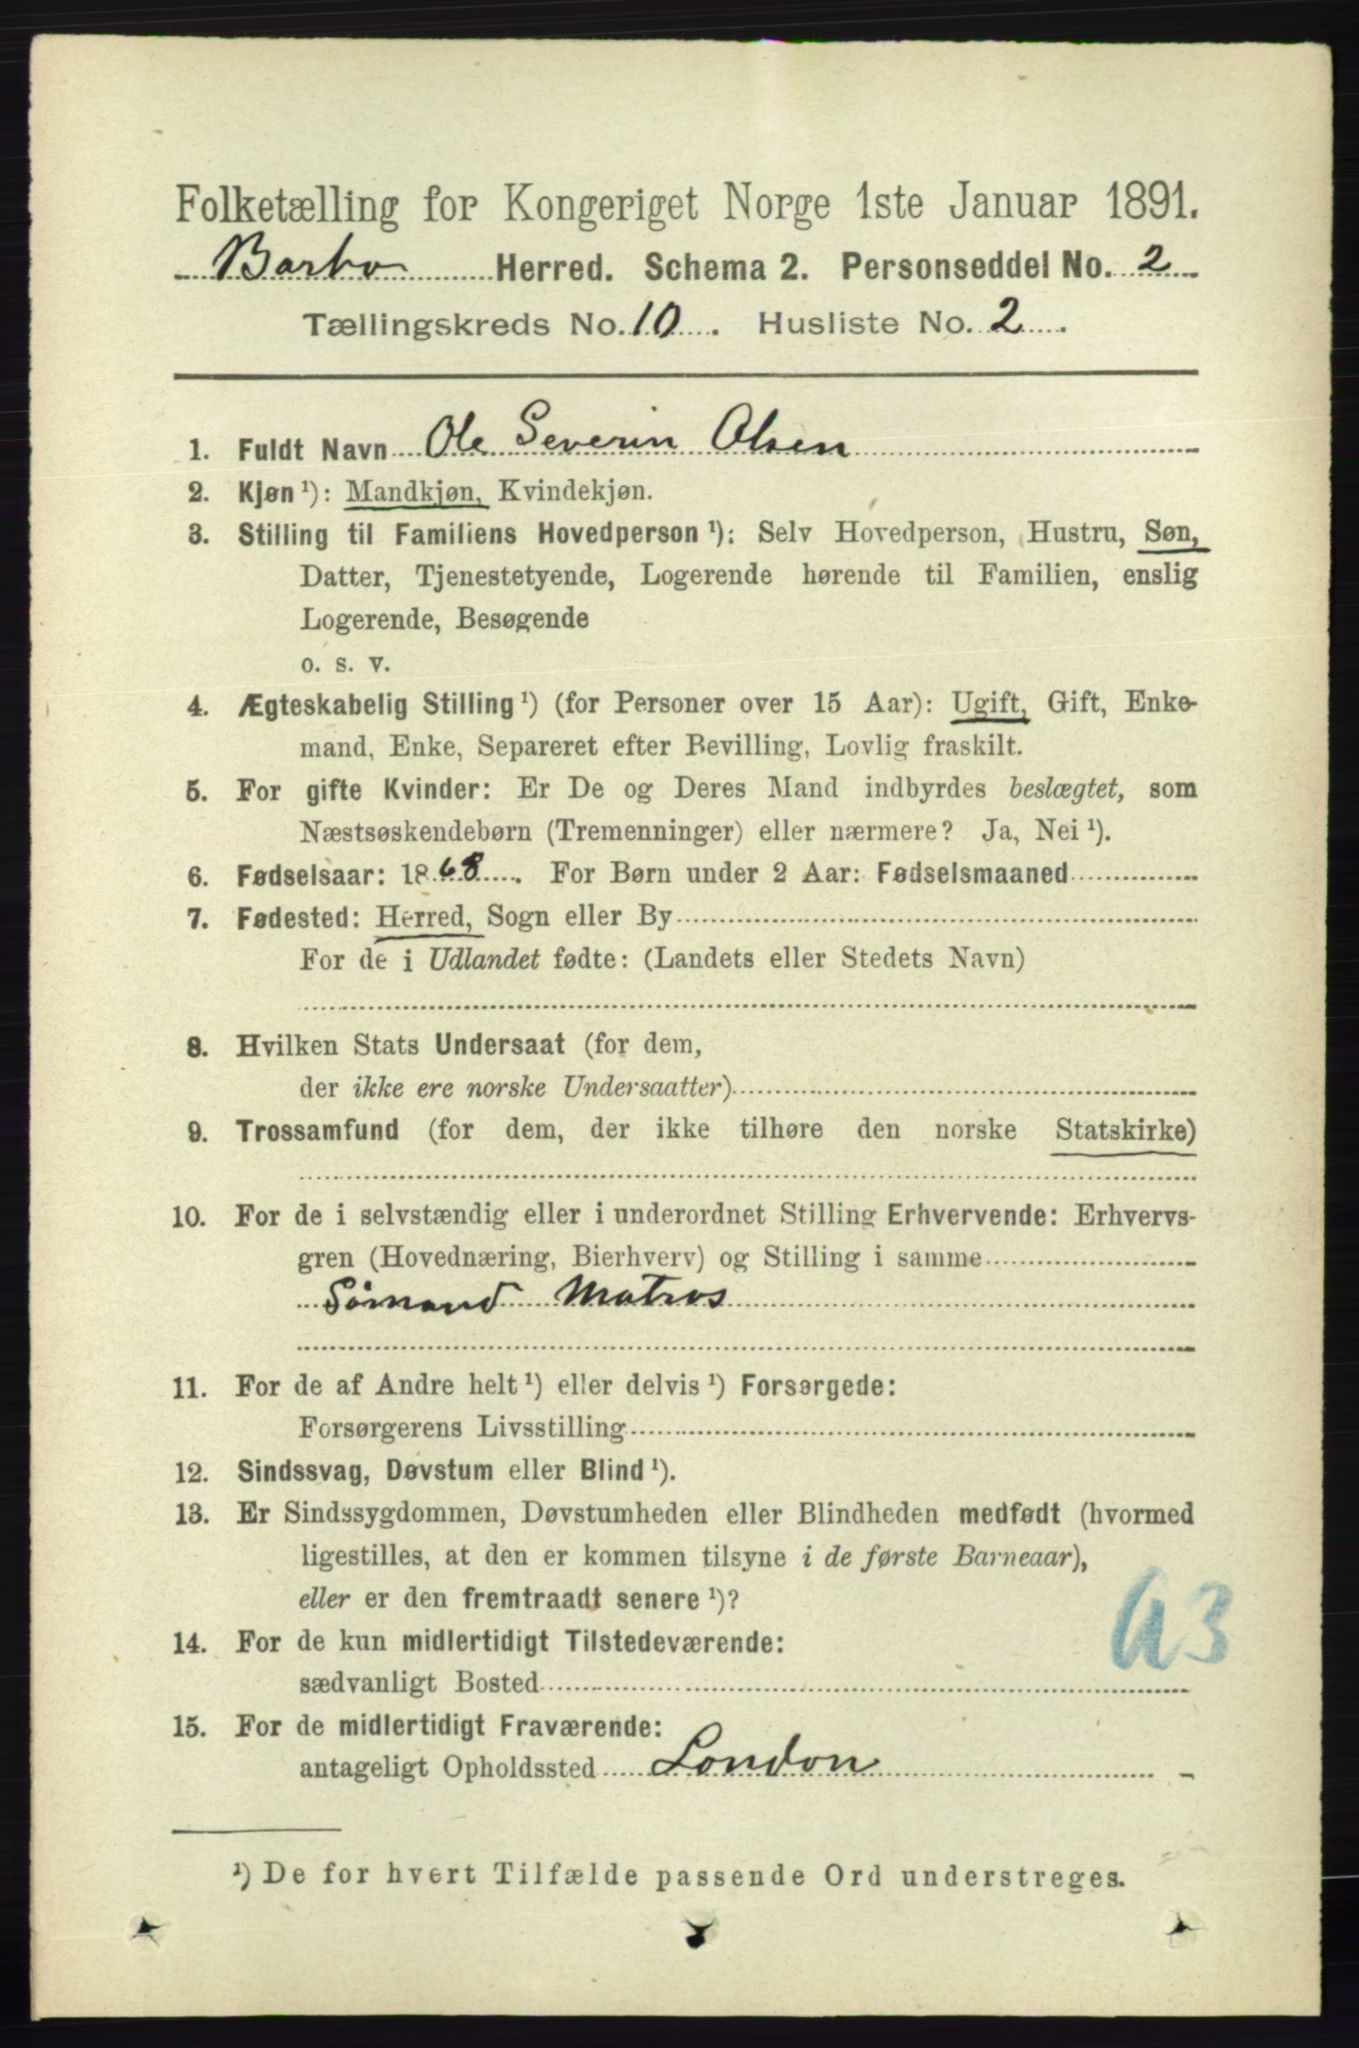 Folketælling for Kongeriget Norge 1ste Januar 1891.
Barbo Herred. Schema 2. Personseddel No. 2
Tællingskreds No. 10. Husliste No. 2.
1. Fuldt Navn Ole Severin Olsen
2. Kjøn ¹): Mandkjøn, Kvindekjøn.
3. Stilling til Familiens Hovedperson ¹): Selv Hovedperson, Hustru, Søn,
Datter, Tjenestetyende, Logerende hørende til Familien, enslig
Logerende, Besøgende
o. s. v.
4. Ægteskabelig Stilling ¹) (for Personer over 15 Aar): Ugift, Gift, Enke-
mand, Enke, Separeret efter Bevilling, Lovlig fraskilt.
5. For gifte Kvinder: Er De og Deres Mand indbyrdes beslægtet, som
Næstsøskendebørn (Tremenninger) eller nærmere? Ja, Nei ¹).
6. Fødselsaar: 1868. For Børn under 2 Aar: Fødselsmaaned
7. Fødested: Herred, Sogn eller By
For de i Udlandet fødte: (Landets eller Stedets Navn)
8. Hvilken Stats Undersaat (for dem,
der ikke ere norske Undersaatter)
9. Trossamfund (for dem, der ikke tilhøre den norske Statskirke)
10. For de i selvstændig eller i underordnet Stilling Erhvervende: Erhvervs-
gren (Hovednæring, Bierhverv) og Stilling i samme
Sømand Matros
11. For de af Andre helt ¹) eller delvis ¹) Forsørgede:
Forsørgerens Livsstilling
12. Sindssvag, Døvstum eller Blind ¹).
13. Er Sindssygdommen, Døvstumheden eller Blindheden medfødt (hvormed
ligestilles, at den er kommen tilsyne i de første Barneaar),
eller er den fremtraadt senere ¹)?
14. For de kun midlertidigt Tilstedeværende:
sædvanligt Bosted
15. For de midlertidigt Fraværende:
antageligt Opholdssted London
¹) De for hvert Tilfælde passende Ord understreges.